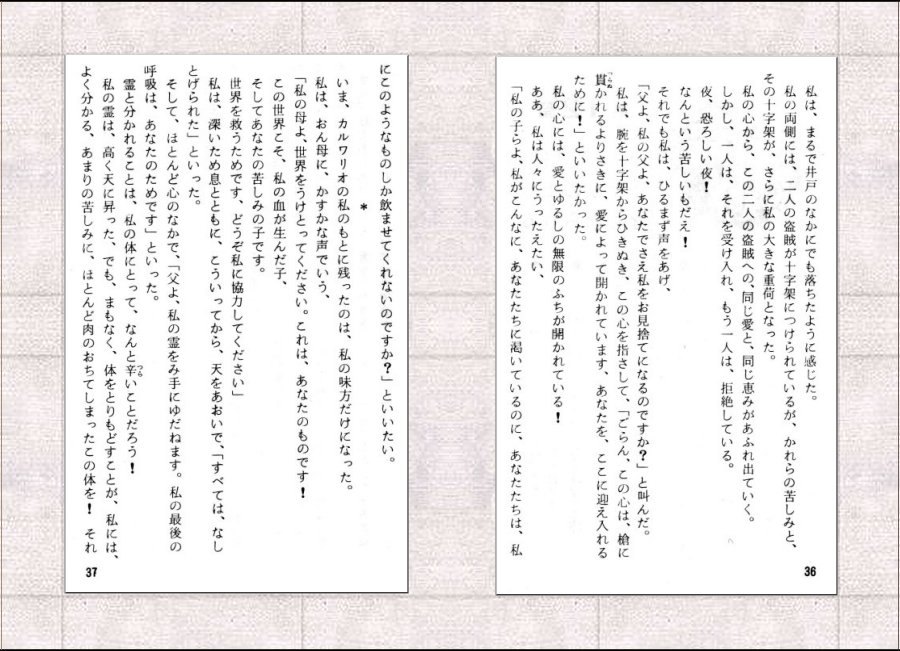 私は、まるで井戸のなかにでも落ちたように感じた。
私の両側には、二人の盗賊が十字架につけられているが、かれらの苦しみと、
その十字架が、さらに私の大きな重荷となった。
私の心から、この二人の盗賊への、同じ愛と、同じ恵みがあふれ出ていく。
しかし、一人は、それを受け入れ、もう一人は、拒絶している。
夜、恐ろしい夜！
なんという苦しいもだえ！
それでも私は、ひるまず声をあげ、
「父よ、私の父よ、あなたでさえ私をお見捨てになるのですか？」と叫んだ。
私は、腕を十字架からひきぬき、この心を指さして、「ごらん、この心は、槍に
貫かれるよりさきに、愛によって開かれています、あなたを、ここに迎え入れる
ために！」といいたかった。
私の心には、愛とゆるしの無限のふちが開かれている！
ああ、私は人々にうったえたい、
「私の子らよ、私がこんなに、あなたたちに渇いているのに、あなたたちは、私
36
にこのようなものしか飲ませてくれないのですか？」といいたい。
*
いま、カルワリオの私のもとに残ったのは、私の味方だけになった。
私は、おん母に、かすかな声でいう、
「私の母よ、世界をうけとってください。これは、あなたのものです！
この世界こそ、私の血が生んだ子、
そしてあなたの苦しみの子です。
世界を救うためです、どうぞ私に協力してください」
私は、深いため息とともに、こういってから、天をあおいで、「すべては、なし
とげられた」といった。
そして、ほとんど心のなかで、「父よ、私の霊をみ手にゆだねます。私の最後の
呼吸は、あなたのためです」といった。
霊と分かれることは、私の体にとって、なんと辛いことだろう！
私の霊は、高く天に昇った、でも、まもなく、体をとりもどすことが、私には、
よく分かる、あまりの苦しみに、ほとんど肉のおちてしまったこの体を！　それ
37